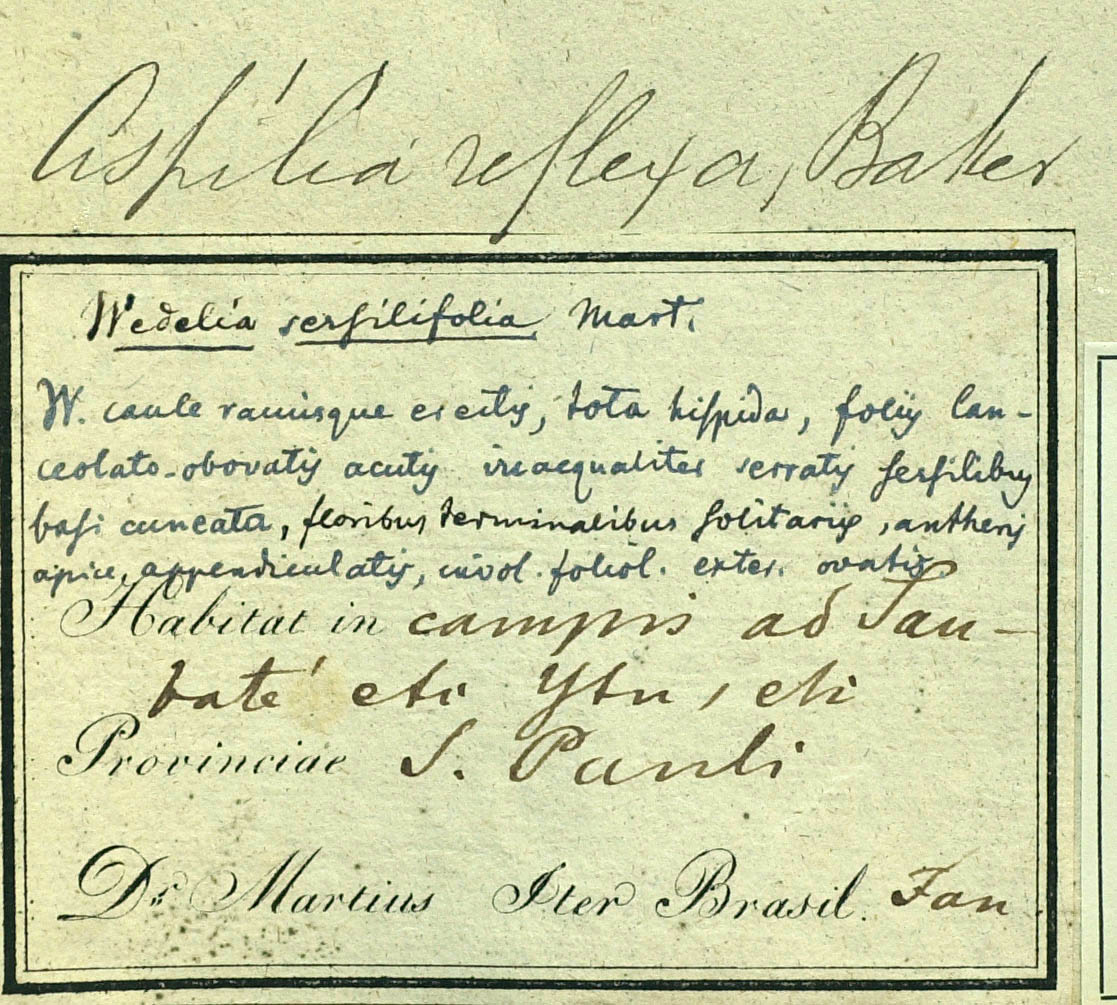 Aspilia reflexa, Baker
Wedelia sessilifolia Mart.
W. caule ramisque erectis, tota hispida, foliis lan-
ceolato-obovatis acutis inaequaliter serratis sessilibus
basi cuneata, floribus terminalibus solitariis, antheris
apice appendiculatis, invol. foliol. exter. ovatis.
Habitat in campis ad Tau-
baté et Ytu,
Provinciae S. Pauli
Dr. Martius Iter Brasil. Jan.